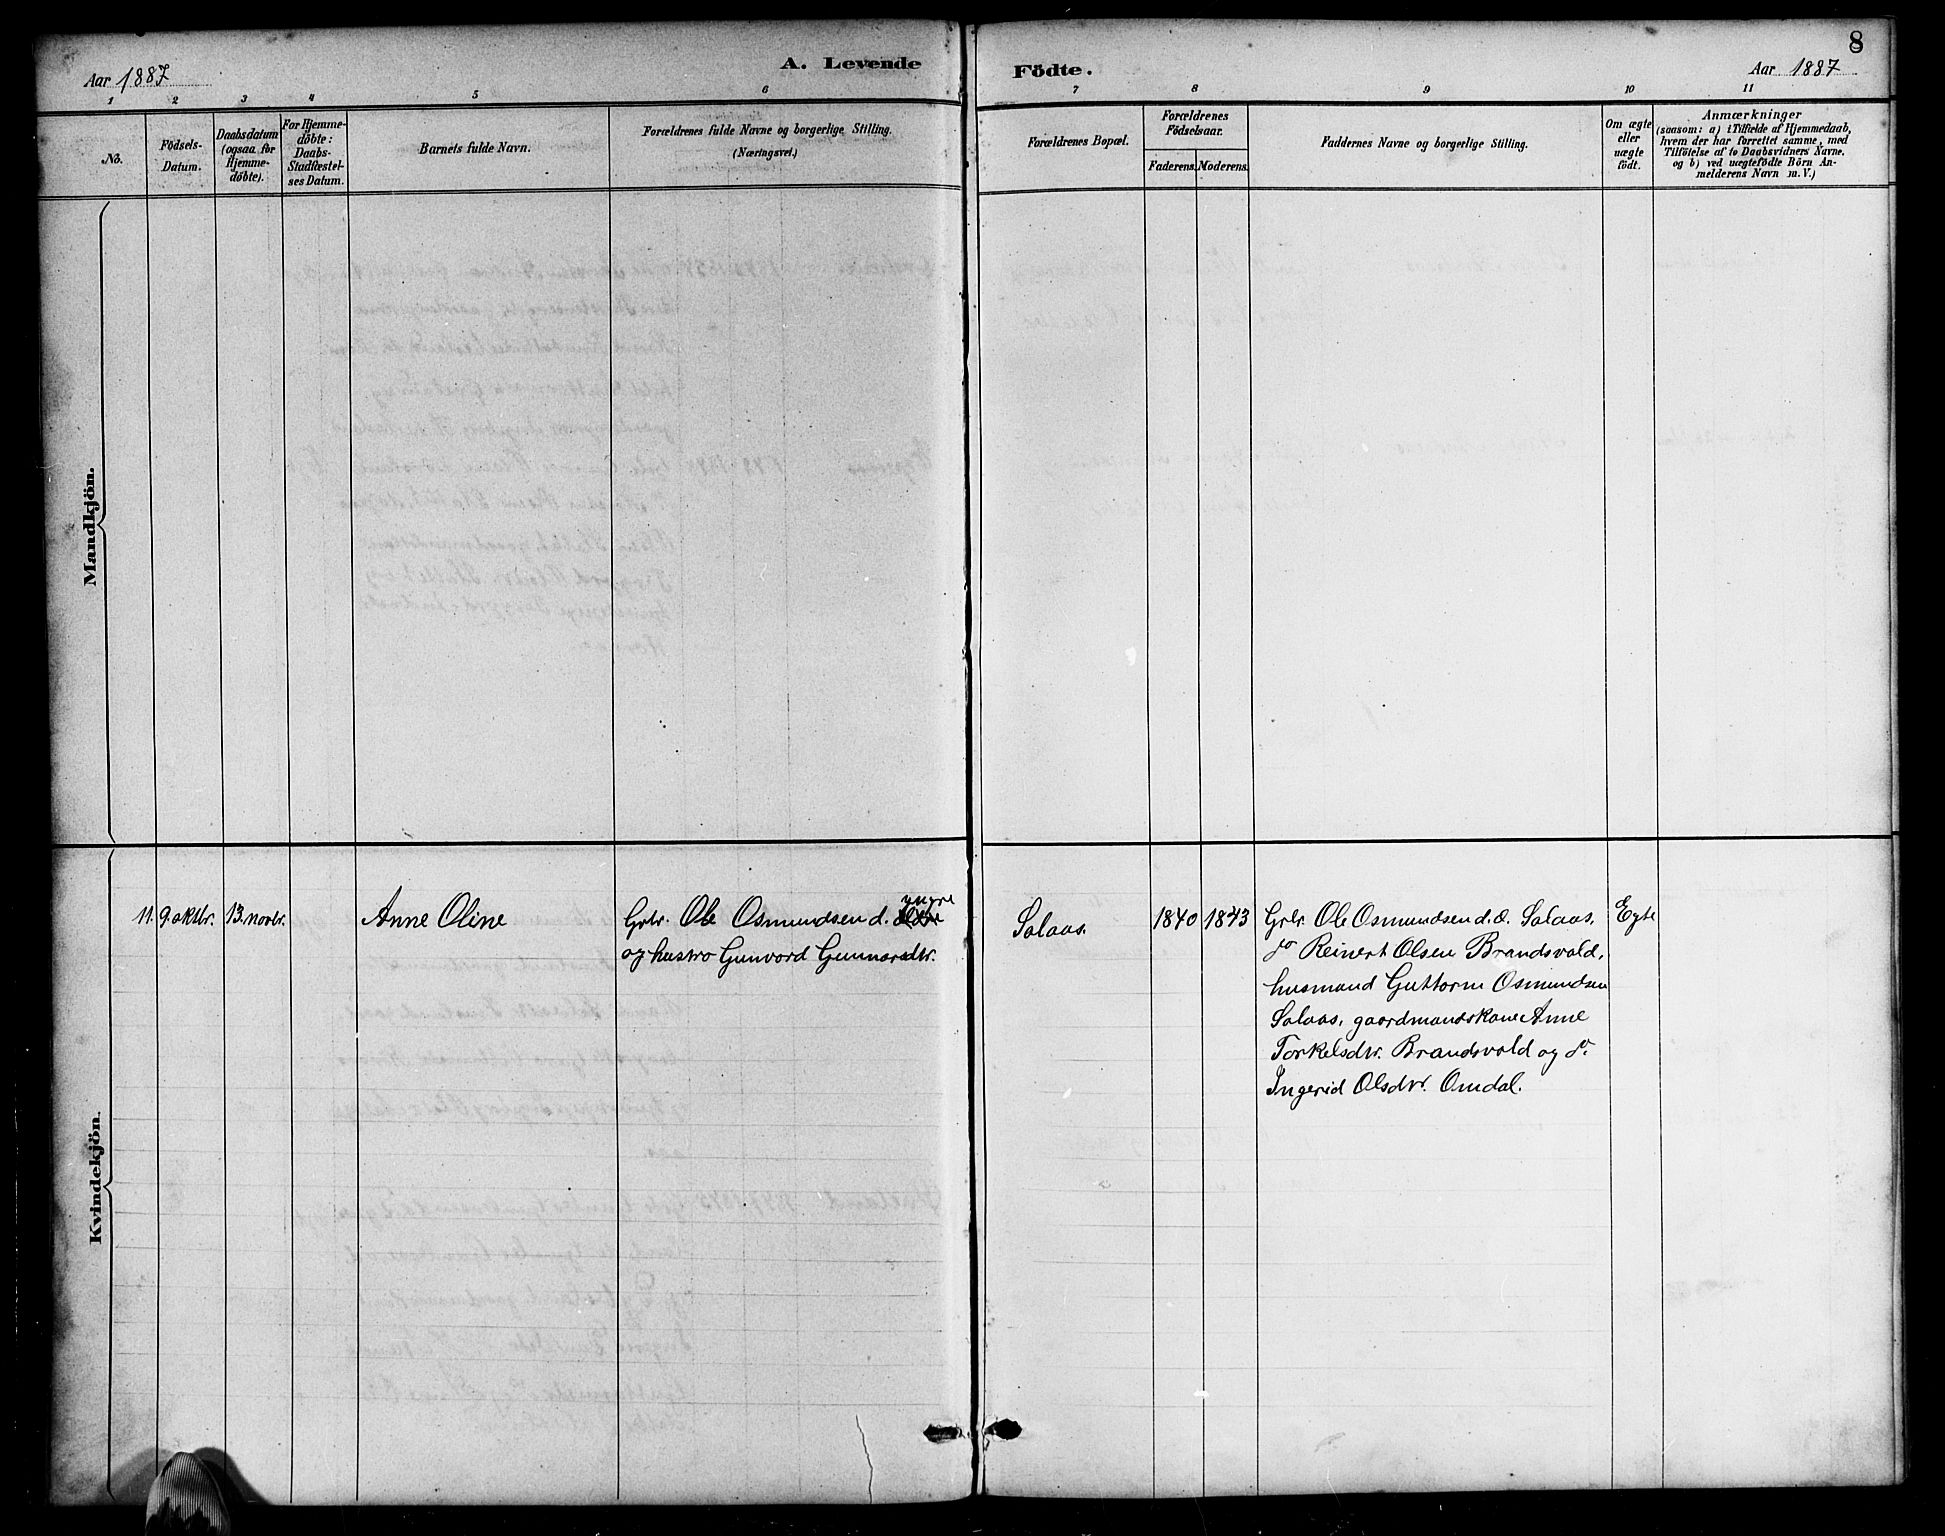 8
Aar 1887
A. Levende
Födte.
Aar 1887
1 2 3 4 5 6 7 8 9 10 11
No.
Födsels-
Datum.
Daabsdatum
(ogsaa for
Hjemme-
døbte).
For Hjemme-
døbte:
Daabs-
Stadfæstel-
ses Datum.
Barnets fulde Navn.
Forældrenes fulde Navne og borgerlige Stilling.
(Næringsvei.)
Forældrenes Bopæl.
Forældrenes
Födselsaar.
Faderens. Moderens.
Faddernes Navne og borgerlige Stilling.
Om ægte
eller
uægte
födt.
Anmærkninger
(saasom: a) i Tilfælde af Hjemmedaab,
hvem der har forrettet samme, med
Tilföielse af to Daabsvidners Navne,
og b) ved uægtefödte Börn An-
melderens Navn m. V.)
Mandkjön.
Kvindekjön.
11. 9. oktbr. 13. novbr.
Anne Oline
yngre
Gbr. Ole Osmundsen d.
og hustro Gunvord Gunnarsdtr.
Salaas.
1840 1843
Gbr. Ole Osmundsen d. æ. Salaas,
do Reinert Olsen Brandsvold,
husmand Guttorm Osmundsen
Salaas, gaardmandskone Anne
Torkelsdtr. Brandsvold og do.
Ingerid Olsdtr. Omdal.
Egte